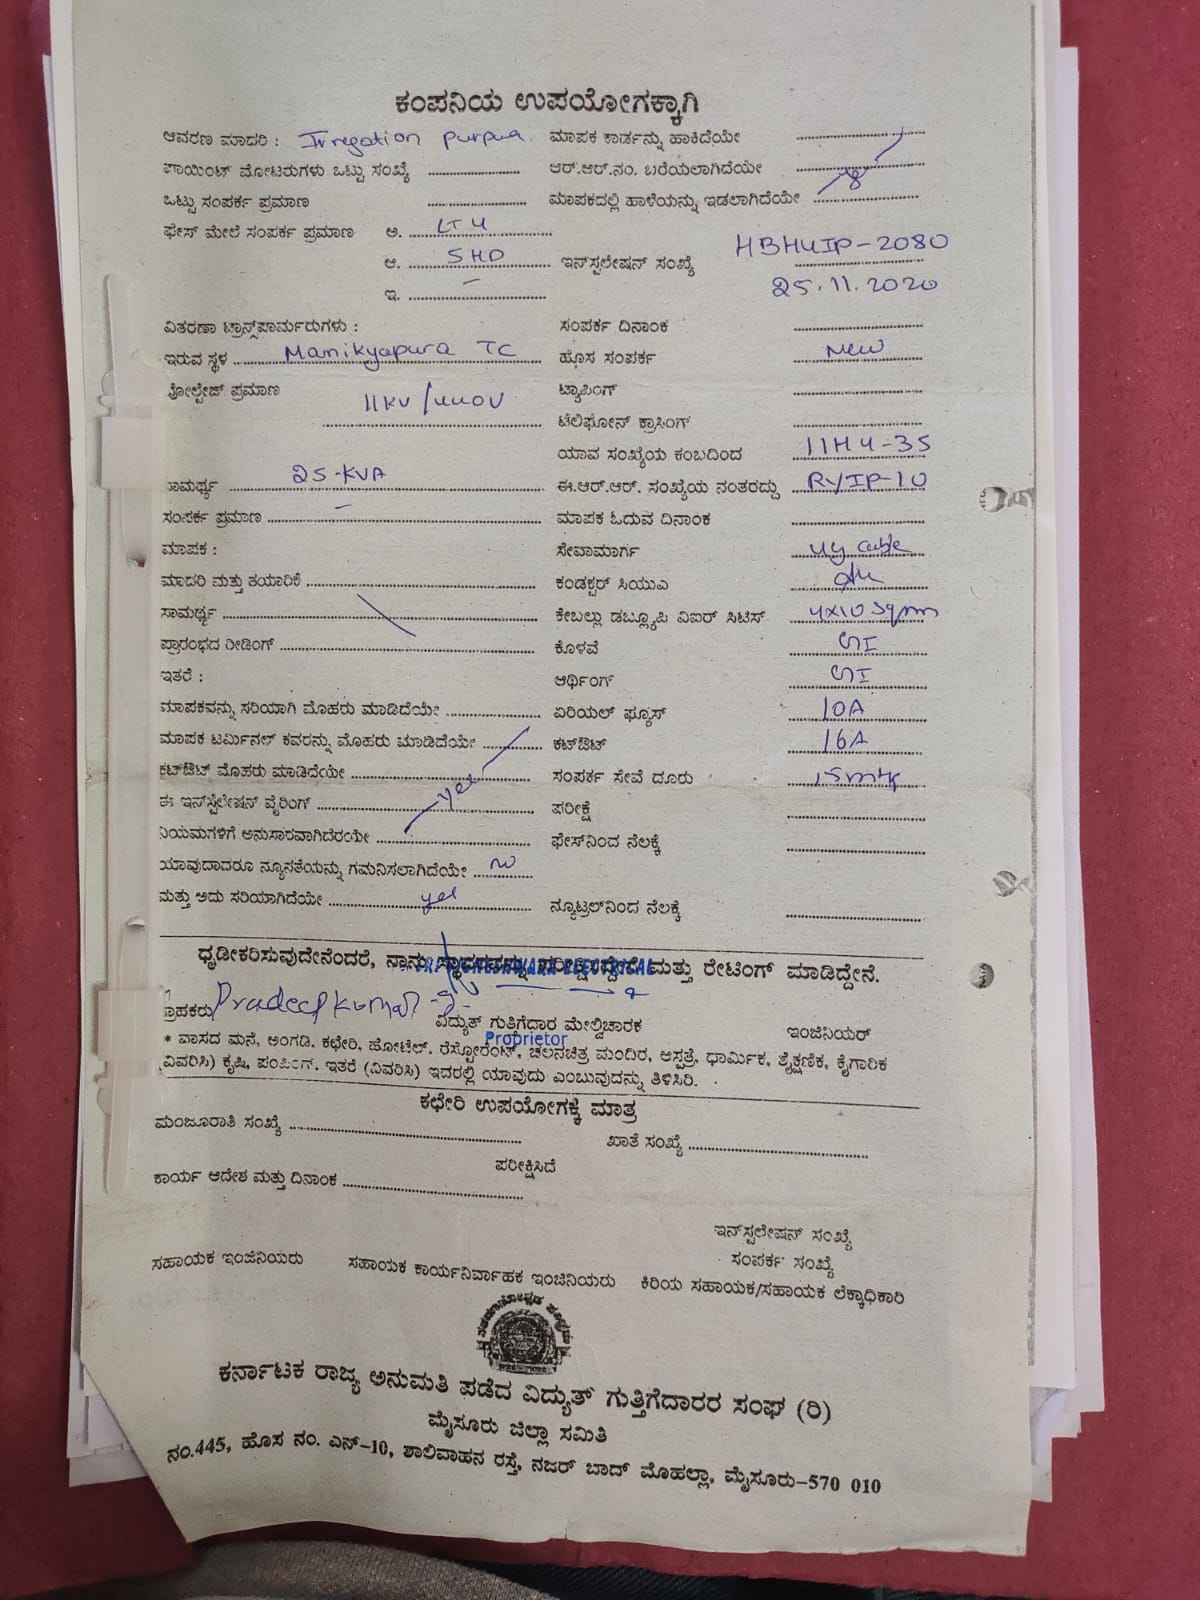 ಕಂಪನಿಯ ಉಪಯೋಗಕ್ಕಾಗಿ
ಆವರಣ ಮಾದರಿ : Irregation purpus ಮಾಪಕ ಕಾರ್ಡನ್ನು ಹಾಕಿದೆಯೇ
ಪಾಯಿಂಟ್ ಮೋಟರುಗಳು ಒಟ್ಟು ಸಂಖ್ಯೆ ಆರ್.ಆರ್.ನಂ. ಬರೆಯಲಾಗಿದೆಯೇ
ಒಟ್ಟು ಸಂಪರ್ಕ ಪ್ರಮಾಣ ಮಾಪಕದಲ್ಲಿ ಹಾಳೆಯನ್ನು ಇಡಲಾಗಿದೆಯೇ
ಫೇಸ್ ಮೇಲೆ ಸಂಪರ್ಕ ಪ್ರಮಾಣ ಅ. LT 4
ಆ. 5 HP ಇನ್‌ಸ್ಟಲೇಷನ್ ಸಂಖ್ಯೆ HBH4IP-2080
ಇ. 25.11.2020
ವಿತರಣಾ ಟ್ರಾನ್ಸ್‌ಫಾರ್ಮರುಗಳು : ಸಂಪರ್ಕ ದಿನಾಂಕ
ಇರುವ ಸ್ಥಳ Manikyapura TC ಹೊಸ ಸಂಪರ್ಕ New
ವೋಲ್ಟೇಜ್ ಪ್ರಮಾಣ 11KV/440V ಟ್ಯಾಪಿಂಗ್
ಟೆಲಿಫೋನ್ ಕ್ರಾಸಿಂಗ್
ಯಾವ ಸಂಖ್ಯೆಯ ಕಂಬದಿಂದ 11H4-35
ಸಾಮರ್ಥ್ಯ 25-KVA ಈ.ಆರ್.ಆರ್. ಸಂಖ್ಯೆಯ ನಂತರದ್ದು RYIP-10
ಸಂಪರ್ಕ ಪ್ರಮಾಣ - ಮಾಪಕ ಓದುವ ದಿನಾಂಕ
ಮಾಪಕ : ಸೇವಾಮಾರ್ಗ ug cable
ಮಾದರಿ ಮತ್ತು ತಯಾರಿಕೆ ಕಂಡಕ್ಟರ್ ಸಿಯುಎ
ಸಾಮರ್ಥ್ಯ ಕೇಬಲ್ಲು ಡಬ್ಲ್ಯೂಪಿ ವಿಐರ್ ಸಿಟಿಸ್ 4x10 sqmm
ಪ್ರಾರಂಭದ ರೀಡಿಂಗ್ ಕೊಳವೆ GI
ಇತರೆ : ಆರ್ಥಿಂಗ್ GI
ಮಾಪಕವನ್ನು ಸರಿಯಾಗಿ ಮೊಹರು ಮಾಡಿದೆಯೇ ಏರಿಯಲ್ ಫ್ಯೂಸ್ 10A
ಮಾಪಕ ಟರ್ಮಿನಲ್ ಕವರನ್ನು ಮೊಹರು ಮಾಡಿದೆಯೇ ಕಟ್‌ಔಟ್ 16A
ಕಟ್‌ಔಟ್ ಮೊಹರು ಮಾಡಿದೆಯೇ ಸಂಪರ್ಕ ಸೇವೆ ದೂರು 15mtr
ಈ ಇನ್‌ಸ್ಟಲೇಷನ್ ವೈರಿಂಗ್ yes ಪರೀಕ್ಷೆ
ನಿಯಮಗಳಿಗೆ ಅನುಸಾರವಾಗಿದೆರಯೇ ಫೇಸ್‌ನಿಂದ ನೆಲಕ್ಕೆ
ಯಾವುದಾದರೂ ನ್ಯೂನತೆಯನ್ನು ಗಮನಿಸಲಾಗಿದೆಯೇ no
ಮತ್ತು ಅದು ಸರಿಯಾಗಿದೆಯೇ yes ನ್ಯೂಟ್ರಲ್‌ನಿಂದ ನೆಲಕ್ಕೆ
ಧೃಡೀಕರಿಸುವುದೇನೆಂದರೆ, ನಾನು ಸ್ಥಾವರವನ್ನು ಪರೀಕ್ಷಿಸಿದ್ದೇನೆ ಮತ್ತು ರೇಟಿಂಗ್ ಮಾಡಿದ್ದೇನೆ.
ಗ್ರಾಹಕರು Pradeep Kumar ವಿದ್ಯುತ್ ಗುತ್ತಿಗೆದಾರ ಮೇಲ್ವಿಚಾರಕ ಇಂಜಿನಿಯರ್
Proprietor
* ವಾಸದ ಮನೆ, ಅಂಗಡಿ. ಕಛೇರಿ, ಹೋಟೆಲ್. ರೆಸ್ಟೋರೆಂಟ್, ಚಲನಚಿತ್ರ ಮಂದಿರ, ಆಸ್ಪತ್ರೆ, ಧಾರ್ಮಿಕ, ಶೈಕ್ಷಣಿಕ, ಕೈಗಾರಿಕ
(ವಿವರಿಸಿ) ಕೃಷಿ, ಪಂಪಿಂಗ್. ಇತರೆ (ವಿವರಿಸಿ) ಇದರಲ್ಲಿ ಯಾವುದು ಎಂಬುವುದನ್ನು ತಿಳಿಸಿರಿ.
ಕಛೇರಿ ಉಪಯೋಗಕ್ಕೆ ಮಾತ್ರ
ಮಂಜೂರಾತಿ ಸಂಖ್ಯೆ ಖಾತೆ ಸಂಖ್ಯೆ
ಪರೀಕ್ಷಿಸಿದೆ
ಕಾರ್ಯ ಆದೇಶ ಮತ್ತು ದಿನಾಂಕ
ಇನ್‌ಸ್ಟಲೇಷನ್ ಸಂಖ್ಯೆ
ಸಂಪರ್ಕ ಸಂಖ್ಯೆ
ಸಹಾಯಕ ಇಂಜಿನಿಯರು ಸಹಾಯಕ ಕಾರ್ಯನಿರ್ವಾಹಕ ಇಂಜಿನಿಯರು ಕಿರಿಯ ಸಹಾಯಕ/ಸಹಾಯಕ ಲೆಕ್ಕಾಧಿಕಾರಿ
ಕರ್ನಾಟಕ ರಾಜ್ಯ ಅನುಮತಿ ಪಡೆದ ವಿದ್ಯುತ್ ಗುತ್ತಿಗೆದಾರರ ಸಂಘ (ರಿ)
ಮೈಸೂರು ಜಿಲ್ಲಾ ಸಮಿತಿ
ನಂ.445, ಹೊಸ ನಂ. ಎನ್-10, ಶಾಲಿವಾಹನ ರಸ್ತೆ, ನಜರ್ ಬಾದ್ ಮೊಹಲ್ಲಾ, ಮೈಸೂರು-570 010